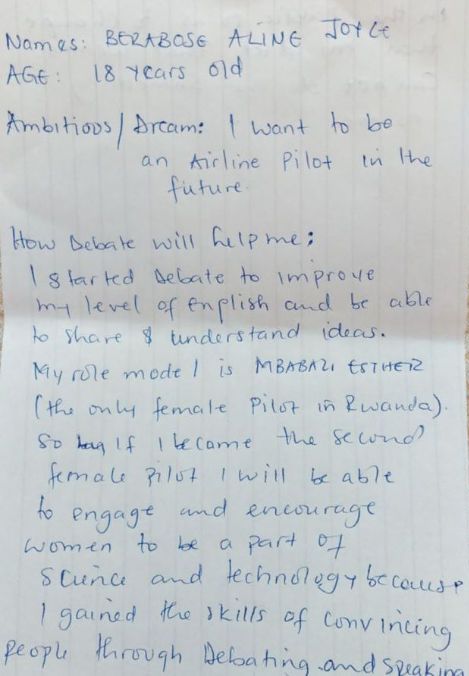 Names: BERABOSE ALINE JOYCE
AGE: 18 years old
Ambitious/Dream: I want to be
an Airline Pilot in the
future.
How Debate will help me:
I started Debate to improve
my level of English and be able
to share & understand ideas.
My role model is MBABAZI ESTHER
(the only female Pilot in Rwanda).
so if I became the second
female pilot I will be able
to engage and encourage
women to be a part of
science and technology because
I gained the skills of convincing
people through Debating and speaking